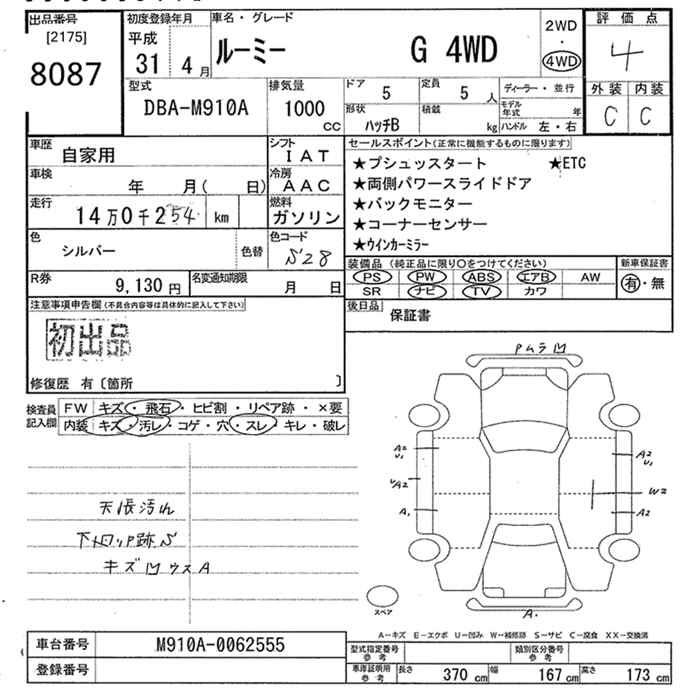 出品番号
[2175]
8087
初度登録年月
平成
31 4月
車名・グレード
ルーミー G 4WD
2WD
・
4WD
評価点
4
型式
DBA-M910A
排気量
1000
CC
ドア 5
定員 5 人
形状 ハッチB
積載 kg
ディーラー・並行
モデル年式 年
ハンドル 左・右
外装 内装
C C
車歴 自家用
シフト IAT
車検 年 月( 日)
冷房 AAC
走行 14万0千254 km
燃料 ガソリン
色 シルバー 色替
色コード S28
R券 9,130円
名変通知期限 月 日
セールスポイント(正常に機能するものに限ります)
★プシュッスタート ★ETC
★両側パワースライドドア
★バックモニター
★コーナーセンサー
★ウインカーミラー
装備品(純正品に限り○をつけてください)
新車保証書
PS PW ABS エアB AW
SR ナビ TV カワ
有・無
後日品 保証書
注意事項申告欄(不具合内容等は具体的に記入して下さい)
初出品
修復歴 有〔箇所 〕
検査員記入欄
FW キズ・飛石・ヒビ割・リペア跡・×要
内装 キズ・汚レ・コゲ・穴・スレ・キレ・破レ
天張汚れ
キズ凹ウスA
PムラM
A2
U1
A2
A1
A2
U1
W2
A2
A.
スペア
A-キズ E-エクボ U-凹み W-補修跡 S-サビ C-腐食 XX-交換済
車台番号 M910A-0062555
登録番号
型式指定番号参考
類別区分番号参考
車庫証明用参考 長さ 370cm 幅 167cm 高さ 173cm